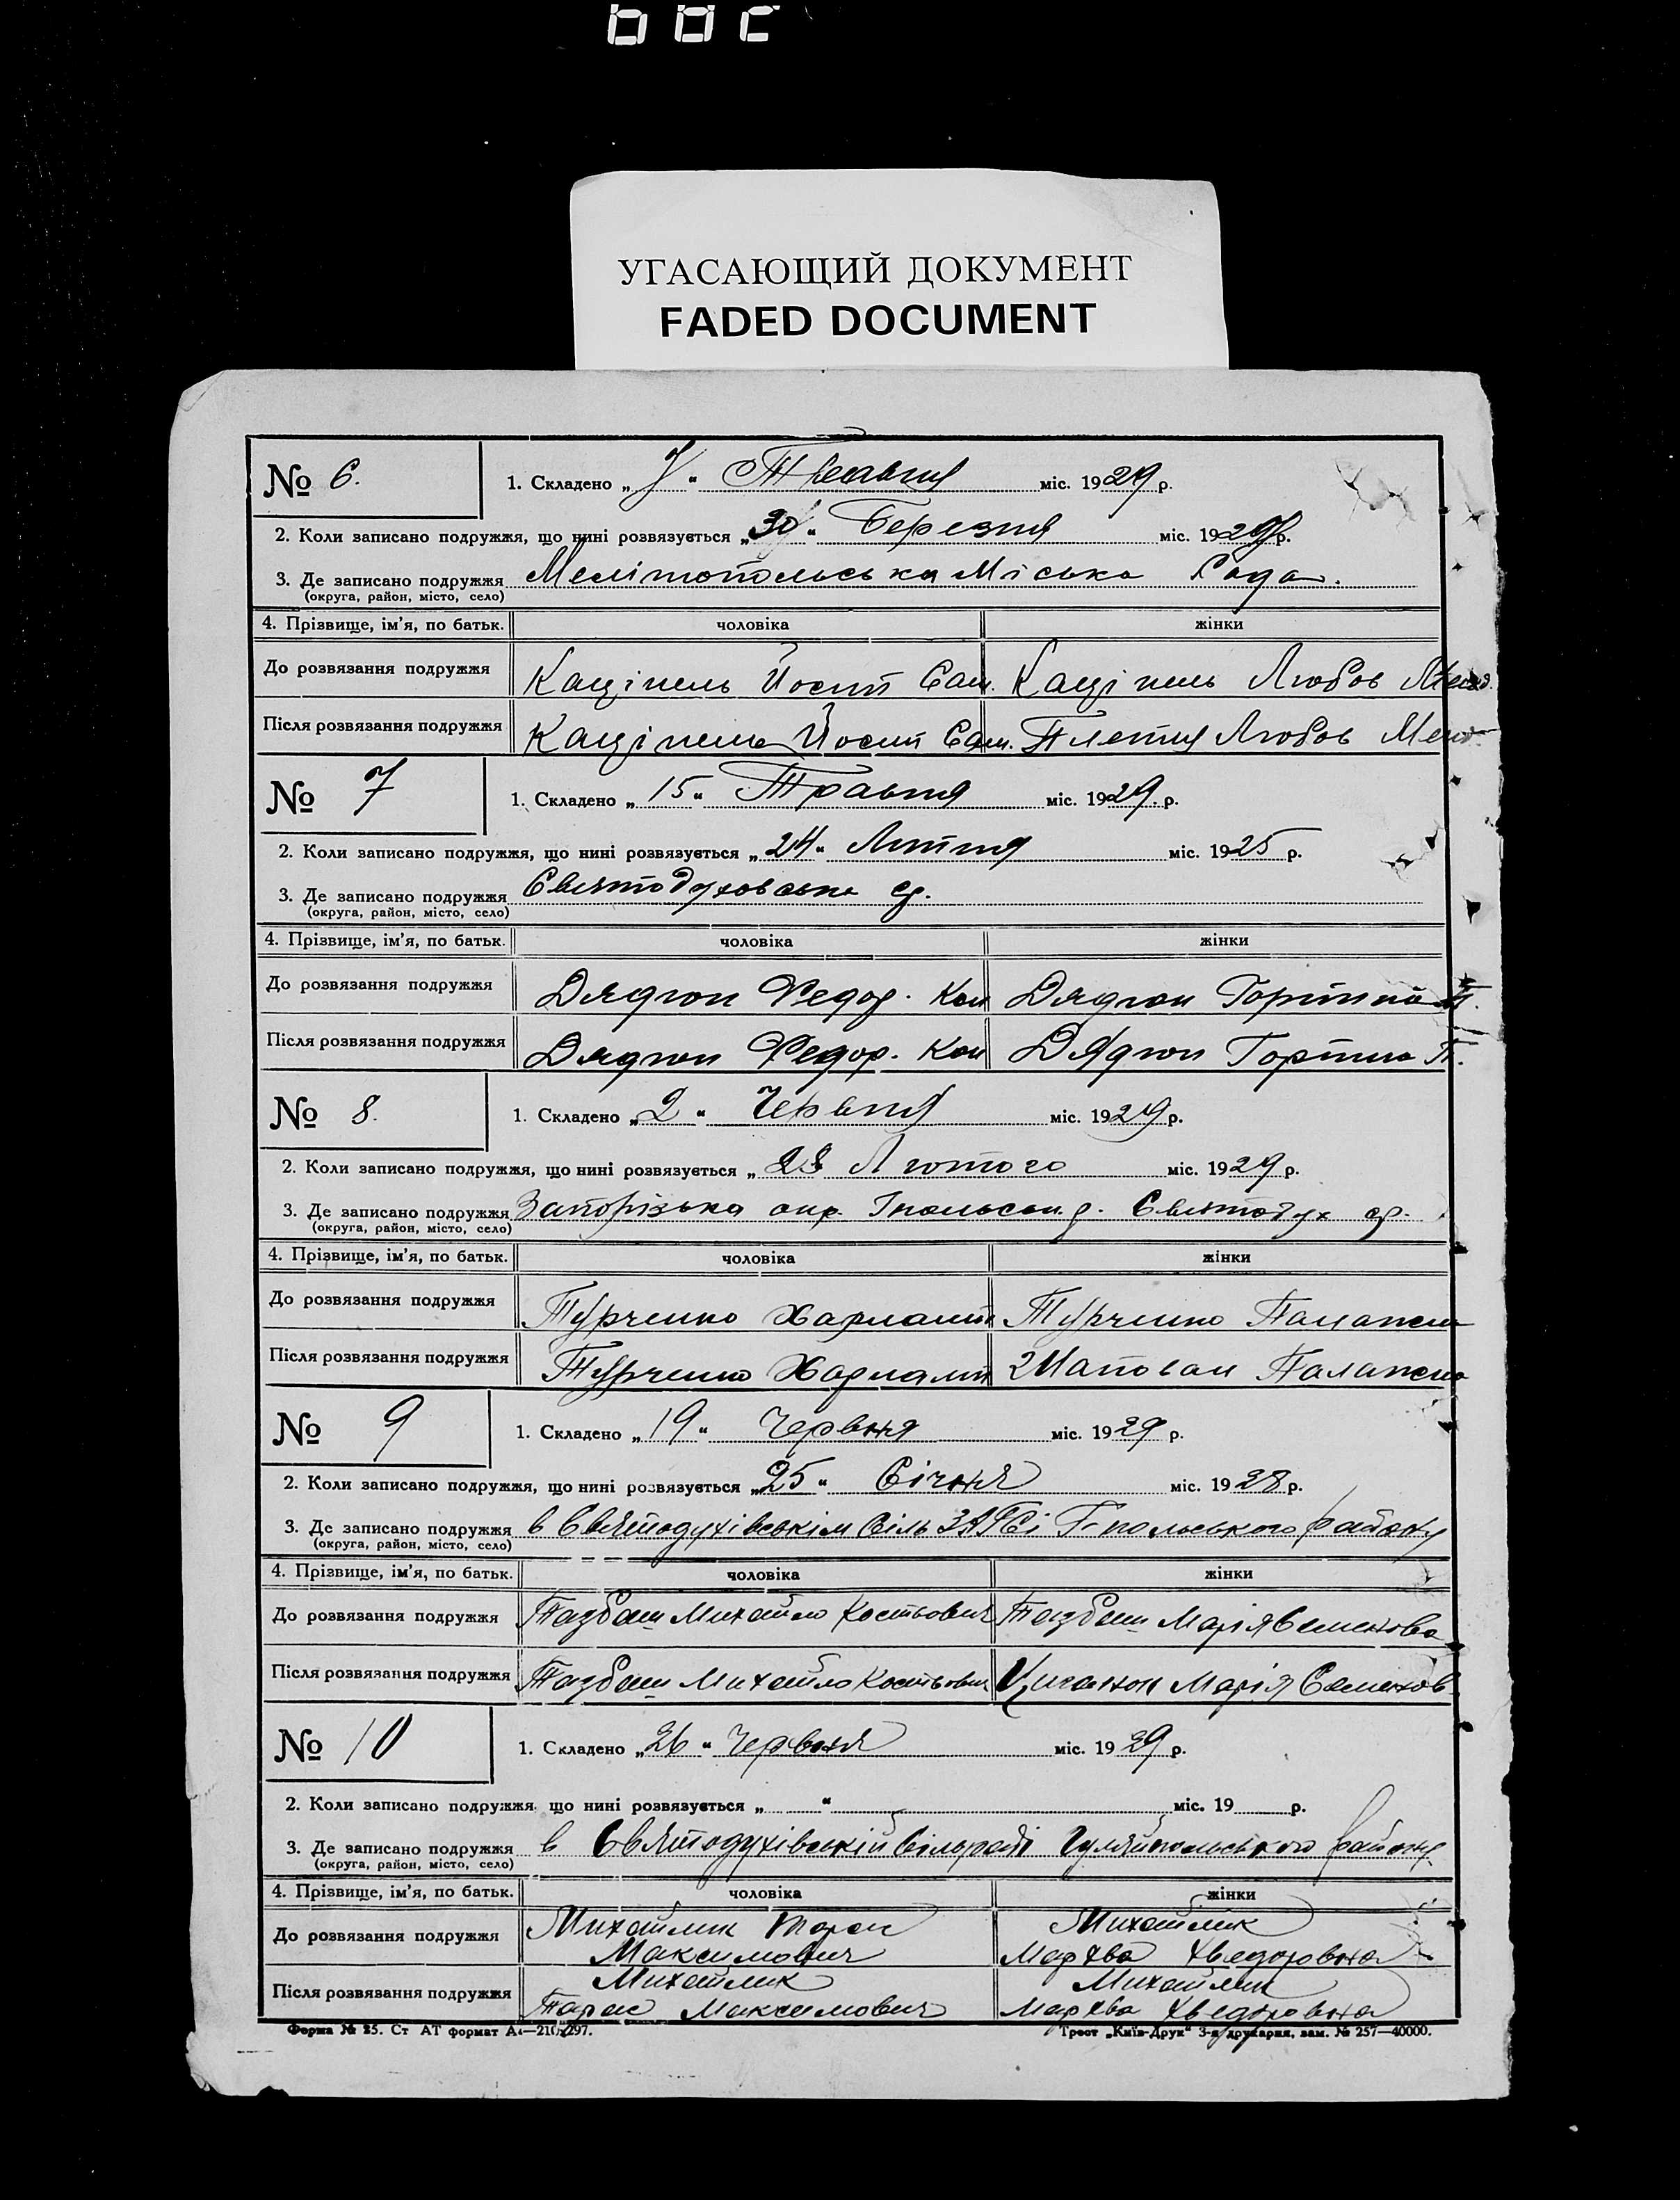 УГАСАЮЩИЙ ДОКУМЕНТ
FADED DOCUMENT
№ 6. 1. Складено „7“ Травня міс. 1929 р.
2. Коли записано подружжя, що нині розвязується „30“ Березня міс. 1929 р.
3. Де записано подружжя Мелітопольська Міська Рада.
(округа, район, місто, село)
4. Прізвище, ім’я, по батьк. чоловіка жінки
До розвязання подружжя Кацінель Йосип Сам. Кацінель Любов
Після розвязання подружжя Кацінель Йосип Сам. Любов
№ 7 1. Складено „15“ Травня міс. 1929. р.
2. Коли записано подружжя, що нині розвязується „24“ міс. 1925 р.
3. Де записано подружжя Святодуховська ср.
(округа, район, місто, село)
4. Прізвище, ім’я, по батьк. чоловіка жінки
До розвязання подружжя Дядюн Федор. Кон Дядюн Горпина П.
Після розвязання подружжя Дядюн Федор. Кон Дядюн Горпина П.
№ 8. 1. Складено „2“ Червня міс. 1929 р.
2. Коли записано подружжя, що нині розвязується „ Лютого міс. 1929 р.
3. Де записано подружжя Запорізька окр. Святодух ср.
(округа, район, місто, село)
4. Прізвище, ім’я, по батьк. чоловіка жінки
До розвязання подружжя Турченко Харламп Турченко Палажка
Після розвязання подружжя Турченко Харламп Шаповал Палажка
№ 9 1. Складено „19“ Червня міс. 1929 р.
2. Коли записано подружжя, що нині розвязується „25“ Січня міс. 1928 р.
3. Де записано подружжя в Святодухівськім Сіль ЗАГСі Г-польського району
(округа, район, місто, село)
4. Прізвище, ім’я, по батьк. чоловіка жінки
До розвязання подружжя Тазбаш Михайло Костьович Тазбаш Марія Семенова
Після розвязання подружжя Тазбаш Михайло Костьович Циганок Марія Семенов
№ 10 1. Складено „26“ Червня міс. 1929 р.
2. Коли записано подружжя, що нині розвязується „ “ міс. 19 р.
3. Де записано подружжя в Святодухівській сільраді Гуляйпольського району
(округа, район, місто, село)
4. Прізвище, ім’я, по батьк. чоловіка жінки
До розвязання подружжя Михайлик Тарас Михайлик
Максимович Мархва Хведоровна
Після розвязання подружжя Михайлик Михайлик
Тарас Максимович Мархва Хведоровна
Форма № 25. Ст АТ формат А4—210х297. Трест „Київ-Друк“ 3-я друкарня, зам. № 257—40000.